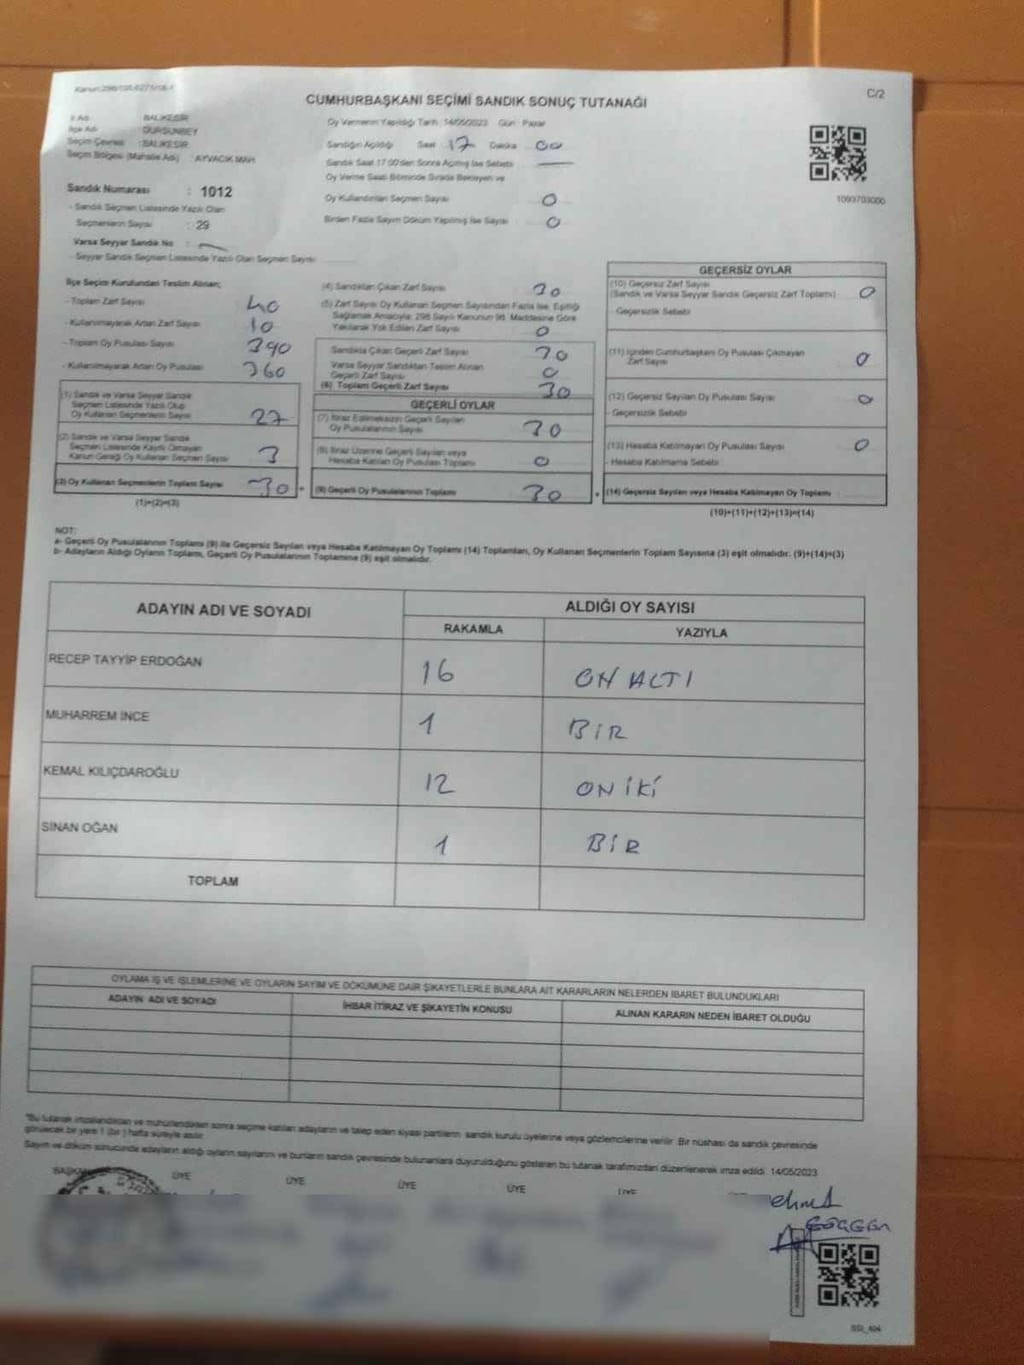 Kanun:298/105-6271/18-1
C/2
CUMHURBAŞKANI SEÇİMİ SANDIK SONUÇ TUTANAĞI
İl Adı : BALIKESİR
İlçe Adı : DURSUNBEY
Seçim Çevresi : BALIKESİR
Seçim Bölgesi (Mahalle Adı) : AYVACIK MAH.
Sandık Numarası : 1012
- Sandık Seçmen Listesinde Yazılı Olan
Seçmenlerin Sayısı : 29
Varsa Seyyar Sandık No :
- Seyyar Sandık Seçmen Listesinde Yazılı Olan Seçmen Sayısı
Oy Vermenin Yapıldığı Tarih 14/05/2023 Gün : Pazar
Sandığın Açıldığı Saat 17 Dakika 00
Sandık Saat 17:00'den Sonra Açılmış İse Sebebi
Oy Verme Saati Bitiminde Sırada Bekleyen ve
Oy Kullandırılan Seçmen Sayısı 0
Birden Fazla Sayım Döküm Yapılmış İse Sayısı 0
1093703000
İlçe Seçim Kurulundan Teslim Alınan;
- Toplam Zarf Sayısı 40
- Kullanılmayarak Artan Zarf Sayısı 10
- Toplam Oy Pusulası Sayısı 390
- Kullanılmayarak Artan Oy Pusulası 360
(1) Sandık ve Varsa Seyyar Sandık
Seçmen Listesinde Yazılı Olup
Oy Kullanan Seçmenlerin Sayısı 27
(2) Sandık ve Varsa Seyyar Sandık
Seçmen Listesinde Kaydı Olmayan
Kanun Gereği Oy Kullanan Seçmen Sayısı 3
(3) Oy Kullanan Seçmenlerin Toplam Sayısı 30
(1)+(2)=(3)
(4) Sandıktan Çıkan Zarf Sayısı 30
(5) Zarf Sayısı Oy Kullanan Seçmen Sayısından Fazla İse, Eşitliği
Sağlamak Amacıyla; 298 Sayılı Kanunun 98. Maddesine Göre
Yakılarak Yok Edilen Zarf Sayısı 0
Sandıkta Çıkan Geçerli Zarf Sayısı 30
Varsa Seyyar Sandıktan Teslim Alınan
Geçerli Zarf Sayısı 0
(6) Toplam Geçerli Zarf Sayısı 30
GEÇERLİ OYLAR
(7) İtiraz Edilmeksizin Geçerli Sayılan
Oy Pusulalarının Sayısı 30
(8) İtiraz Üzerine Geçerli Sayılan veya
Hesaba Katılan Oy Pusulası Toplamı 0
(9) Geçerli Oy Pusulalarının Toplamı 30
GEÇERSİZ OYLAR
(10) Geçersiz Zarf Sayısı
(Sandık ve Varsa Seyyar Sandık Geçersiz Zarf Toplamı) 0
- Geçersizlik Sebebi
(11) İçinden Cumhurbaşkanı Oy Pusulası Çıkmayan
Zarf Sayısı 0
(12) Geçersiz Sayılan Oy Pusulası Sayısı 0
- Geçersizlik Sebebi
(13) Hesaba Katılmayan Oy Pusulası Sayısı 0
- Hesaba Katılmama Sebebi
(14) Geçersiz Sayılan veya Hesaba Katılmayan Oy Toplamı
(10)+(11)+(12)+(13)=(14)
NOT:
a- Geçerli Oy Pusulalarının Toplamı (9) ile Geçersiz Sayılan veya Hesaba Katılmayan Oy Toplamı (14) Toplamları, Oy Kullanan Seçmenlerin Toplam Sayısına (3) eşit olmalıdır. (9)+(14)=(3)
b- Adayların Aldığı Oyların Toplamı, Geçerli Oy Pusulalarının Toplamına (9) eşit olmalıdır.
ADAYIN ADI VE SOYADI
ALDIĞI OY SAYISI
RAKAMLA YAZIYLA
RECEP TAYYİP ERDOĞAN 16 ON ALTI
MUHARREM İNCE 1 BİR
KEMAL KILIÇDAROĞLU 12 ON İKİ
SİNAN OĞAN 1 BİR
TOPLAM
OYLAMA İŞ VE İŞLEMLERİNE VE OYLARIN SAYIM VE DÖKÜMÜNE DAİR ŞİKAYETLERLE BUNLARA AİT KARARLARIN NELERDEN İBARET BULUNDUKLARI
ADAYIN ADI VE SOYADI İHBAR İTİRAZ VE ŞİKAYETİN KONUSU ALINAN KARARIN NEDEN İBARET OLDUĞU
*Bu tutanak imzalandıktan ve mühürlendikten sonra seçime katılan adayların ve talep eden siyasi partilerin sandık kurulu üyelerine veya gözlemcilerine verilir. Bir nüshası da sandık çevresinde
görülecek bir yere 1 (bir) hafta süreyle asılır.
Sayım ve döküm sonucunda adayların aldığı oyların sayılarını ve bunların sandık çevresinde bulunanlara duyurulduğunu gösteren bu tutanak tarafımızdan düzenlenerek imza edildi. 14/05/2023
BAŞKAN ÜYE ÜYE ÜYE ÜYE ÜYE